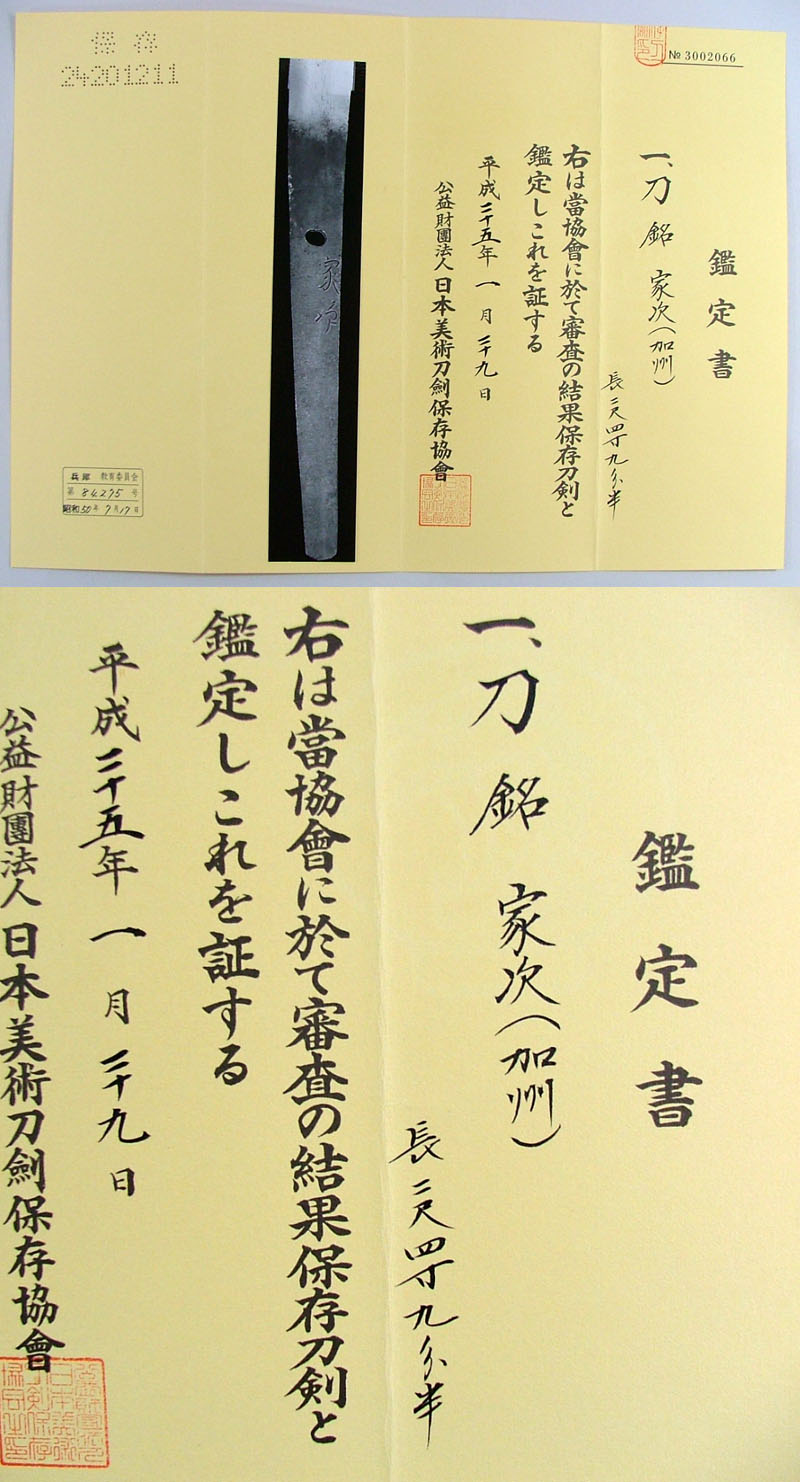 № 3002066
鑑定書
一、刀 銘 家次(加州)
長 二尺四寸九分半
右は當協會に於て審査の結果保存刀剣と
鑑定しこれを証する
平成二十五年一月二十九日
公益財團法人日本美術刀劍保存協會
家次
保存
24201211
兵庫 教育委員会
第 84275 号
昭和50年9月17日
鑑定書
一、刀 銘 家次(加州)
長 二尺四寸九分半
右は當協會に於て審査の結果保存刀剣と
鑑定しこれを証する
平成二十五年一月二十九日
公益財團法人日本美術刀劍保存協會